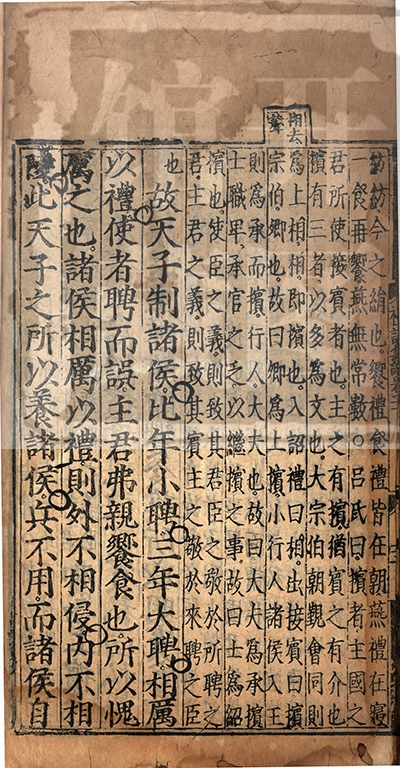 紡紡今之絹也饗禮食禮皆在朝燕禮在寢
一食再饗燕無常數○呂氏曰擯者主國之
君所使接賓者也主之有擯猶賓之有介也
擯有三者以多為文也大宗伯朝覲會同則
為上相相即擯也入詔禮曰相出接賓曰擯
宗伯卿也故曰卿為上擯小行人諸侯入王
則為承而擯行人大夫也故曰大夫為承擯
士職卑承官之乏以繼擯之事故曰士為紹
擯也使臣之義則致其君之敬於所聘之
君主君之義則致其賓主之敬於來聘之臣
也
故天子制諸侯比年小聘三年大聘相厲
以禮使者聘而誤主君弗親饗食也所以愧
厲之也諸侯相厲以禮則外不相侵內不相
陵此天子之所以養諸侯兵不用而諸侯自